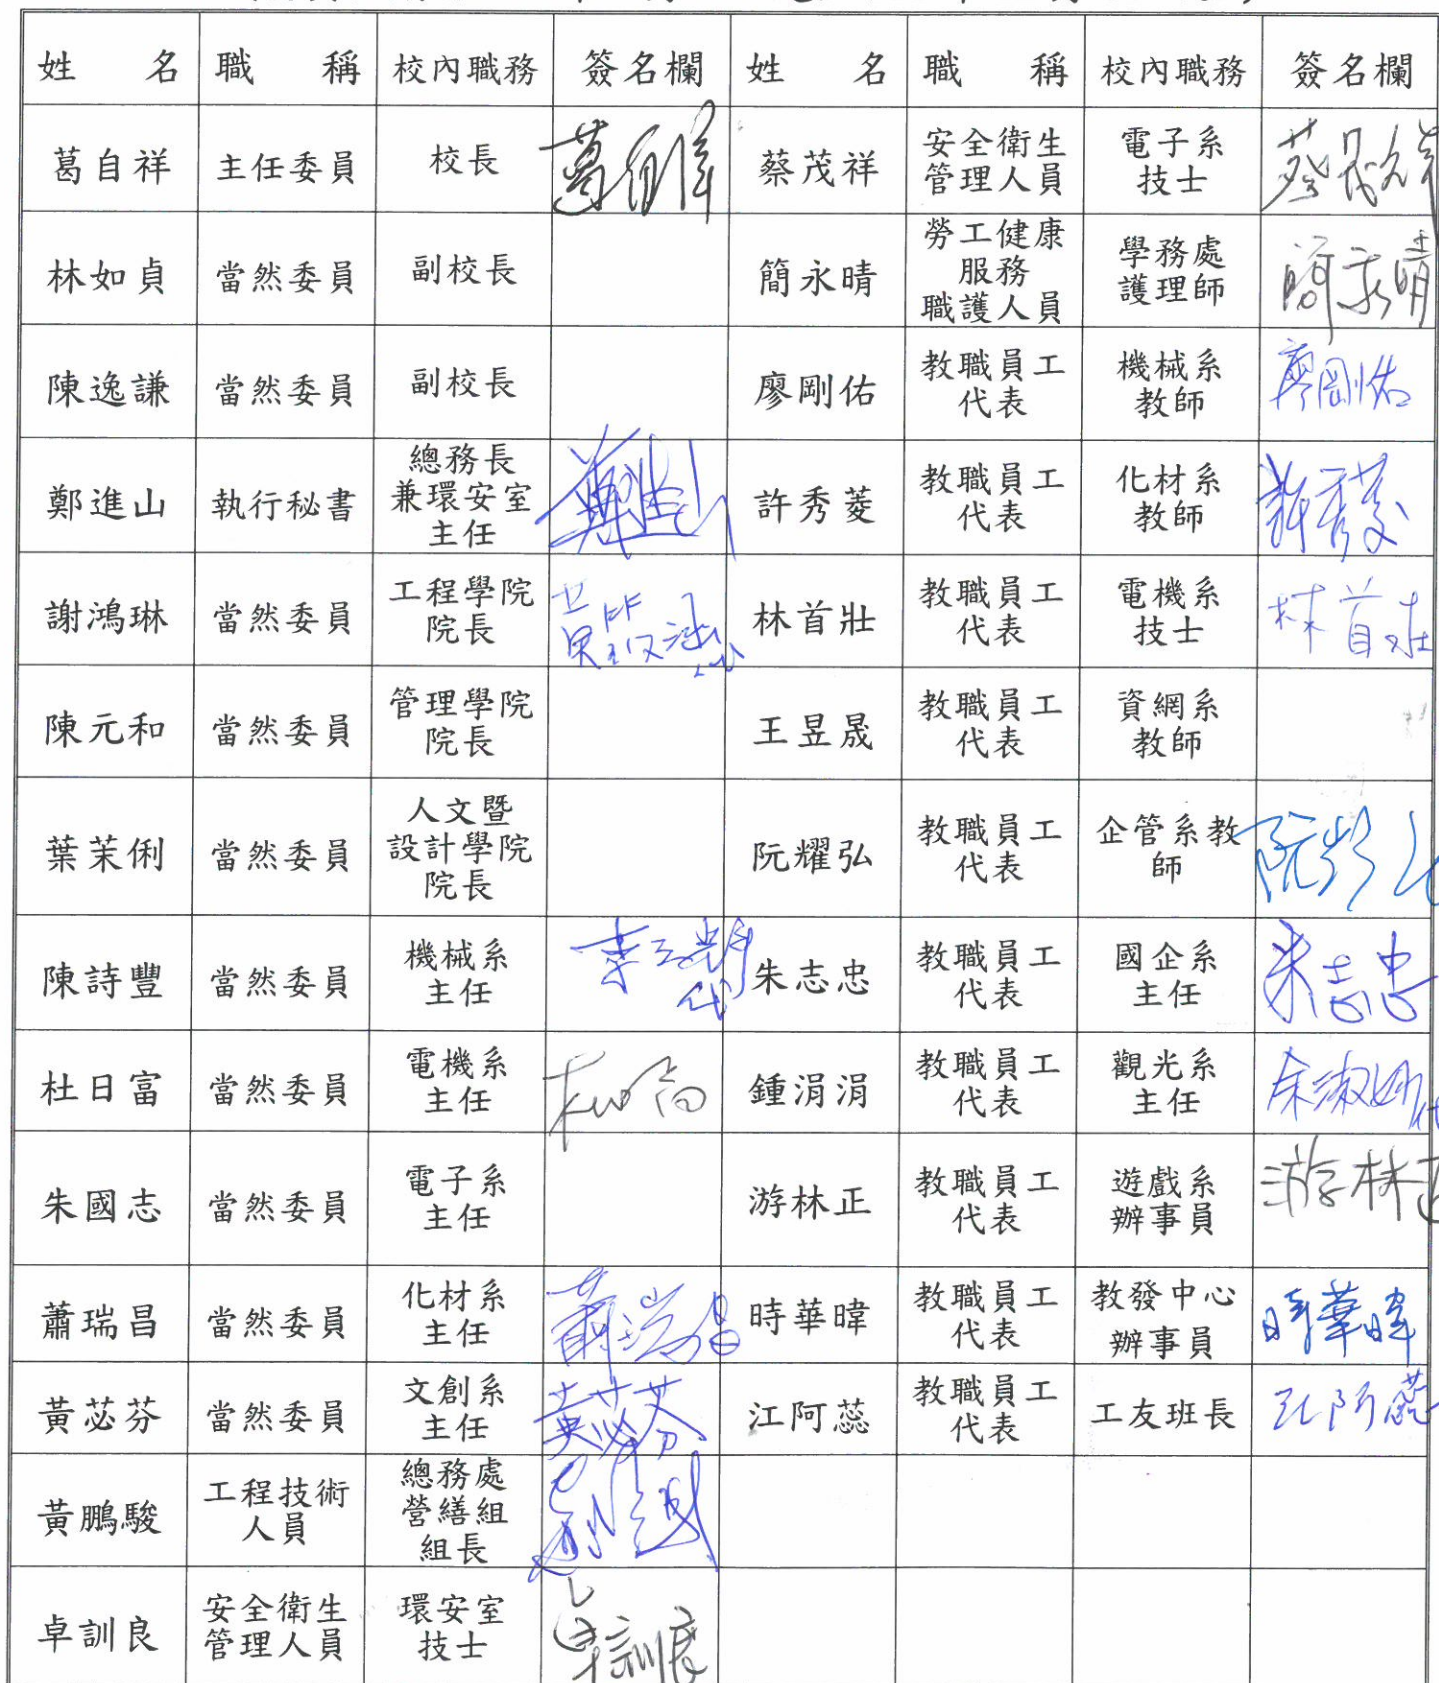 姓名 職稱 校內職務 簽名欄 姓名 職稱 校內職務 簽名欄
葛自祥 主任委員 校長 葛自祥 蔡茂祥 安全衛生管理人員 電子系技士 蔡茂祥
林如貞 當然委員 副校長 簡永晴 勞工健康服務職護人員 學務處護理師 簡永晴
陳逸謙 當然委員 副校長 廖剛佑 教職員工代表 機械系教師 廖剛佑
鄭進山 執行秘書 總務長兼環安室主任 鄭進山 許秀菱 教職員工代表 化材系教師 許秀菱
謝鴻琳 當然委員 工程學院院長 林首壯 教職員工代表 電機系技士 林首壯
陳元和 當然委員 管理學院院長 王昱晟 教職員工代表 資網系教師
葉茉俐 當然委員 人文暨設計學院院長 阮耀弘 教職員工代表 企管系教師 阮耀弘
陳詩豐 當然委員 機械系主任 朱志忠 教職員工代表 國企系主任 朱志忠
杜日富 當然委員 電機系主任 杜日富 鍾涓涓 教職員工代表 觀光系主任
朱國志 當然委員 電子系主任 游林正 教職員工代表 遊戲系辦事員 游林正
蕭瑞昌 當然委員 化材系主任 蕭瑞昌 時華暐 教職員工代表 教發中心辦事員 時華暐
黃苾芬 當然委員 文創系主任 黃苾芬 江阿蕊 教職員工代表 工友班長 江阿蕊
黃鵬駿 工程技術人員 總務處營繕組組長
卓訓良 安全衛生管理人員 環安室技士 卓訓良